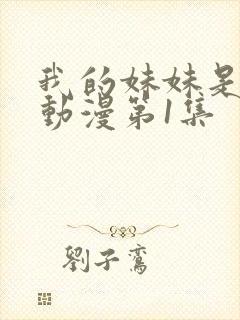 我的妹妹是
動漫第1集
劉子鸞